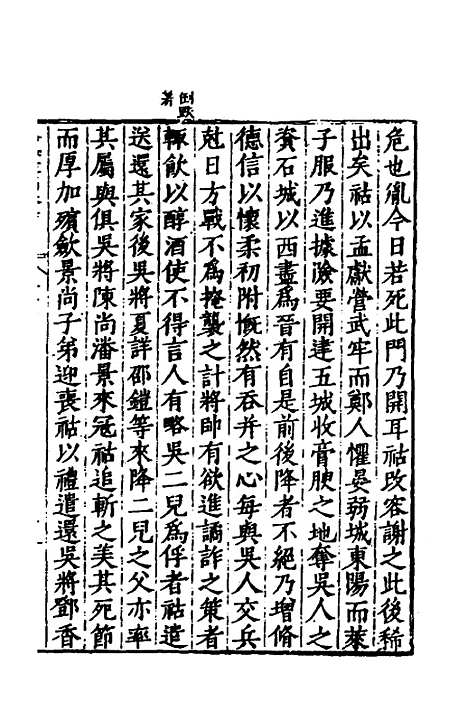 危也胤今日若死此門乃開耳祜改容謝之此後稀
出矣祜以孟獻營武牢而鄭人懼晏弱城東陽而萊
子服乃進據險要開建五城收膏腴之地奪吳人之
資石城以西盡為晉有自是前後降者不絕乃增脩
德信以懷柔初附慨然有吞并之心每與吳人交兵
尅日方戰不為掩襲之計將帥有欲進譎詐之策者
輒飲以醇酒使不得言人有略吳二兒為俘者祜遣
送還其家後吳將夏詳邵鎧等來降二兒之父亦率
其屬與俱吳將陳尚潘景來冦祜追斬之美其死節
而厚加殯歛景尚子弟迎喪祜以禮遣還吳將鄧香